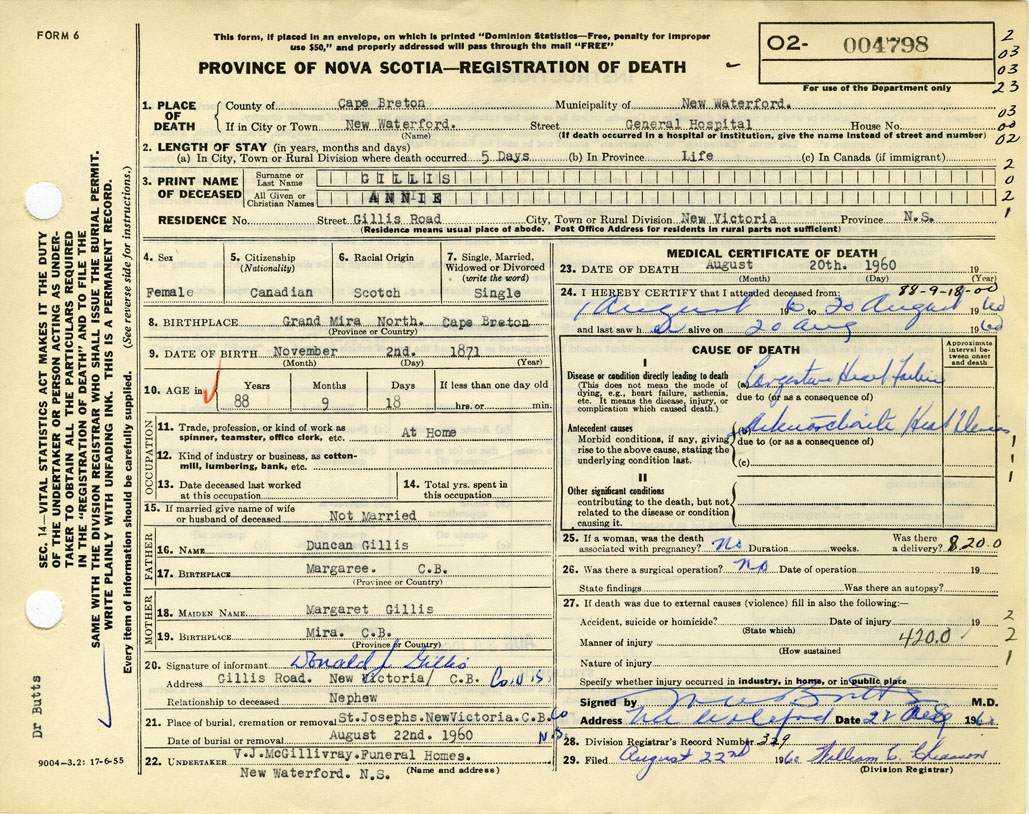 FORM 6
This form, if placed in an envelope, on which is printed "Dominion Statistics—Free, penalty for improper
use $50," and properly addressed will pass through the mail "FREE"
PROVINCE OF NOVA SCOTIA—REGISTRATION OF DEATH
O2- 004798
For use of the Department only
2
03
03
23
03
00
02
2
0
2
1
1. PLACE OF DEATH
County of Cape Breton Municipality of New Waterford.
If in City or Town New Waterford. Street General Hospital House No.
(Name) (If death occurred in a hospital or institution, give the name instead of street and number)
2. LENGTH OF STAY (in years, months and days)
(a) In City, Town or Rural Division where death occurred 5 Days (b) In Province Life (c) In Canada (if immigrant)
3. PRINT NAME OF DECEASED
Surname or Last Name GILLIS
All Given or Christian Names ANNIE
RESIDENCE No. Street Gillis Road City, Town or Rural Division New Victoria Province N.S.
(Residence means usual place of abode. Post Office Address for residents in rural parts not sufficient)
4. Sex
Female
5. Citizenship (Nationality)
Canadian
6. Racial Origin
Scotch
7. Single, Married, Widowed or Divorced (write the word)
Single
8. BIRTHPLACE Grand Mira North. Cape Breton
(Province or Country)
9. DATE OF BIRTH November 2nd. 1871
(Month) (Day) (Year)
10. AGE in
Years Months Days If less than one day old
88 9 18 hrs. or min.
OCCUPATION
11. Trade, profession, or kind of work as spinner, teamster, office clerk, etc. At Home
12. Kind of industry or business, as cotton-mill, lumbering, bank, etc.
13. Date deceased last worked at this occupation
14. Total yrs. spent in this occupation
15. If married give name of wife or husband of deceased Not Married
FATHER
16. NAME Duncan Gillis
17. BIRTHPLACE Margaree. C.B.
(Province or Country)
MOTHER
18. MAIDEN NAME Margaret Gillis
19. BIRTHPLACE Mira. C.B.
(Province or Country)
20. Signature of informant Donald J Gillis
Address Gillis Road. New Victoria/ C.B.
Relationship to deceased Nephew
21. Place of burial, cremation or removal St.Josephs.NewVictoria.C.B. Co
Date of burial or removal August 22nd. 1960 N.S.
22. UNDERTAKER V.J.McGillivray.Funeral Homes.
New Waterford. N.S. (Name and address)
MEDICAL CERTIFICATE OF DEATH
23. DATE OF DEATH August 20th. 1960 19
(Month) (Day) (Year)
88-9-18-00
24. I HEREBY CERTIFY that I attended deceased from:
1 August 1960 to 20 August 1960
and last saw h alive on 20 Aug 1960
CAUSE OF DEATH
Approximate interval between onset and death
I
Disease or condition directly leading to death
(This does not mean the mode of dying, e.g., heart failure, asthenia, etc. It means the disease, injury, or complication which caused death.)
(a) Congestive Heart Failure
due to (or as a consequence of)
Antecedent causes
Morbid conditions, if any, giving rise to the above cause, stating the underlying condition last.
(b) Arteriosclerotic Heart Disease
due to (or as a consequence of)
(c)
1
1
1
II
Other significant conditions
contributing to the death, but not related to the disease or condition causing it.
25. If a woman, was the death associated with pregnancy? No Duration weeks. Was there a delivery? 820.0
26. Was there a surgical operation? No Date of operation 19
State findings Was there an autopsy?
27. If death was due to external causes (violence) fill in also the following:—
Accident, suicide or homicide? Date of injury 19
(State which)
Manner of injury 420.0
(How sustained
Nature of injury
2
2
1
Specify whether injury occurred in industry, in home, or in public place
Signed by M.D.
Address New Waterford Date 22 Aug 1960
28. Division Registrar's Record Number 329
29. Filed August 22nd 1960 William C.
(Division Registrar)
SEC. 14—VITAL STATISTICS ACT MAKES IT THE DUTY
OF THE UNDERTAKER OR PERSON ACTING AS UNDER-
TAKER TO OBTAIN ALL THE PARTICULARS REQUIRED
IN THE "REGISTRATION OF DEATH" AND TO FILE THE
SAME WITH THE DIVISION REGISTRAR WHO SHALL ISSUE THE BURIAL PERMIT.
WRITE PLAINLY WITH UNFADING INK. THIS IS A PERMANENT RECORD.
Every item of information should be carefully supplied. (See reverse side for instructions.)
Dr Butts
9004-3.2: 17-6-55